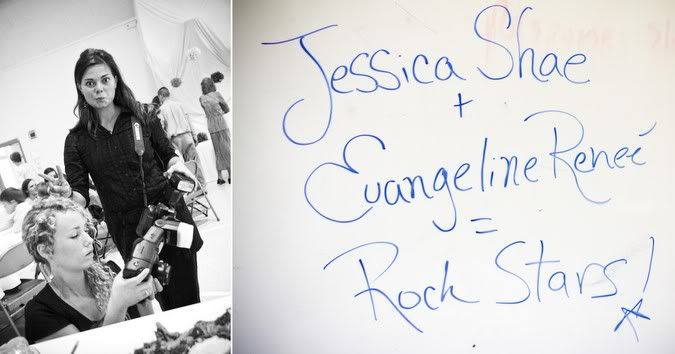 Jessica Shae
+
Evangeline Reneé
=
Rock Stars!